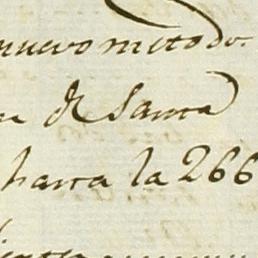 nuevo metodo.
de Santa
hasta la 266